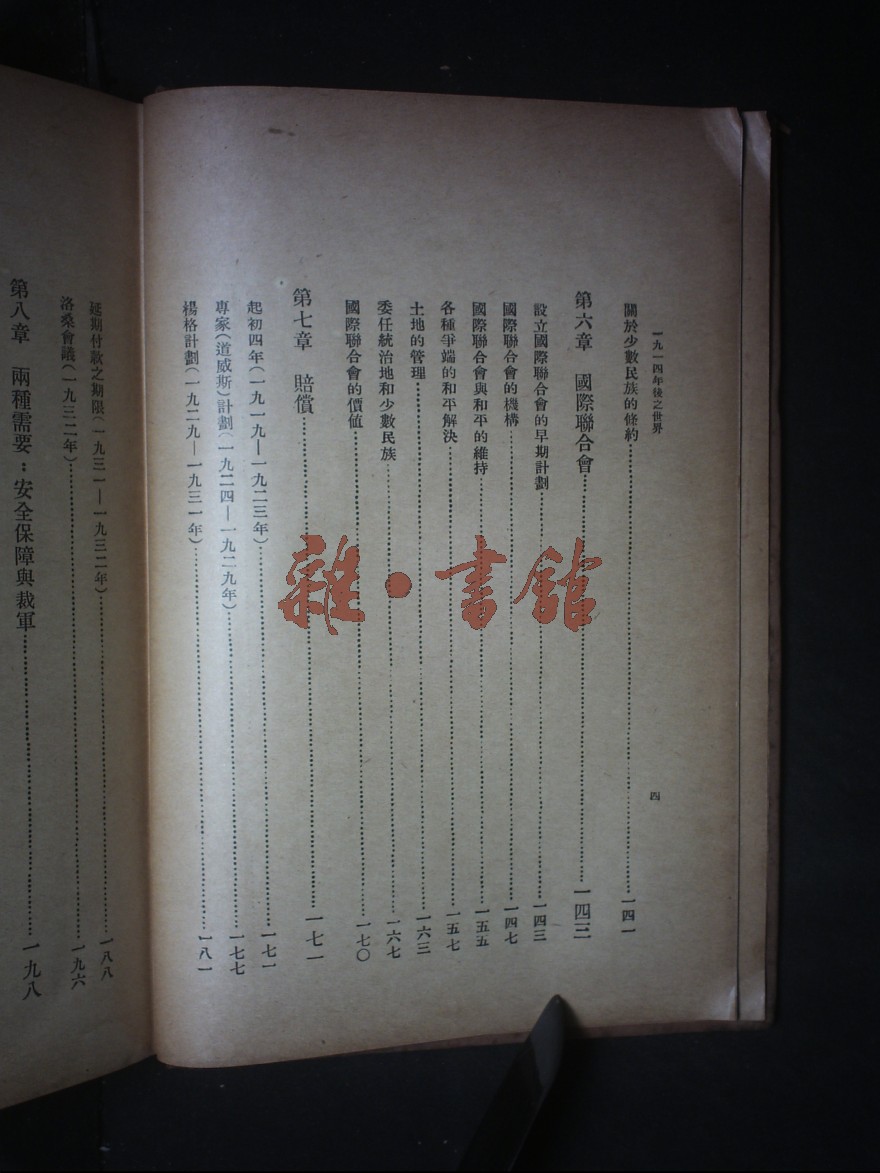 一九一四年後之世界
四
關於少數民族的條約……一四一
第六章　國際聯合會……一四三
設立國際聯合會的早期計劃……一四三
國際聯合會的機構……一四七
國際聯合會與和平的維持……一五五
各種爭端的和平解決……一五七
土地的管理……一六三
委任統治地和少數民族……一六七
國際聯合會的價値……一七〇
第七章　賠償……一七一
起初四年(一九一九—一九二三年)……一七一
專家(道威斯)計劃(一九二四—一九二九年)……一七七
楊格計劃(一九二九—一九三一年)……一八一
延期付款之期限(一九三一—一九三二年)……一八八
洛桑會議(一九三二年)……一九六
第八章　兩種需要：安全保障與裁軍……一九八
雜·書館